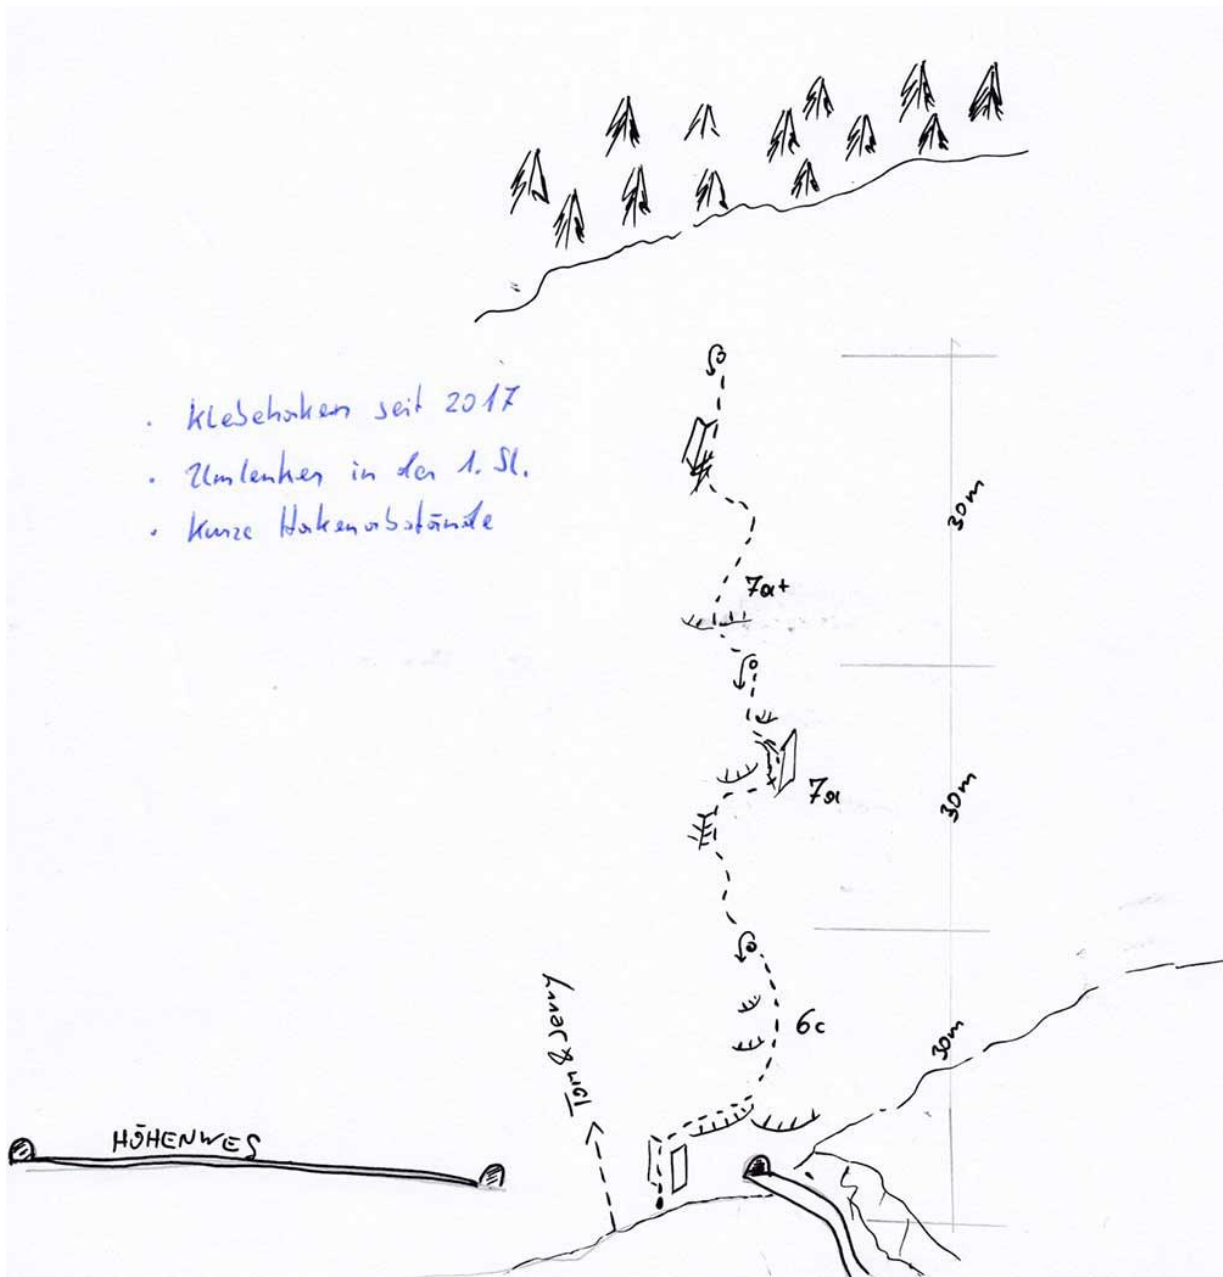 · Klebehaken seit 2017
· Umlenker in der 1. SL.
· Kurze Hakenabstände
30m
7a+
7a
30m
6c
30m
Tom & Jerry
HÖHENWEG